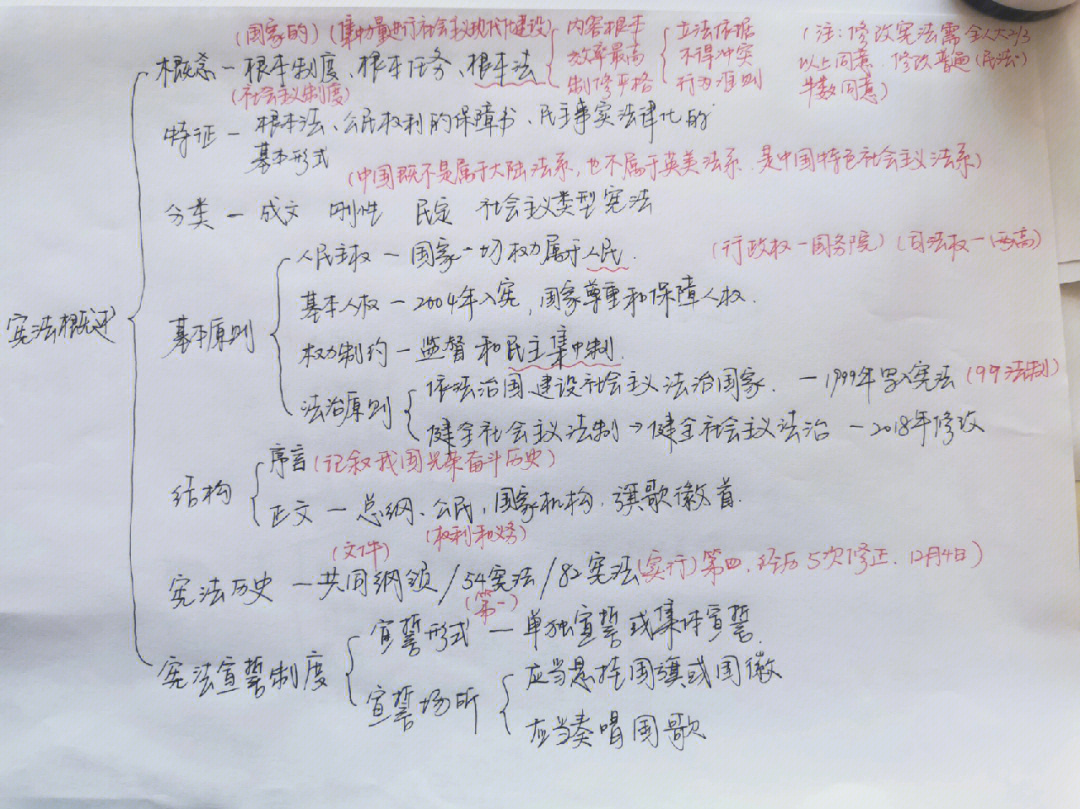 (国家的) (集中力量进行社会主义现代化建设)
概念 — 根本制度、根本任务、根本法
(社会主义制度)
内容根本
效率最高
制修严格
立法依据
不得冲突
行为准则
(注:修改宪法需全人大2/3
以上同意,修改普通(民法..)
半数同意)
特征 — 根本法、公民权利的保障书、民主事实法律化的
基本形式
(中国既不是属于大陆法系,也不属于英美法系.是中国特色社会主义法系)
分类 — 成文 刚性 民定 社会主义类型宪法
宪法概述
基本原则
人民主权 — 国家一切权力属于人民.
(行政权—国务院) (司法权—两高)
基本人权 — 2004年入宪,国家尊重和保障人权.
权力制约 — 监督和民主集中制.
法治原则
依法治国建设社会主义法治国家. — 1999年写入宪法 (99法制)
健全社会主义法制→健全社会主义法治 — 2018年修改
结构
序言 (记叙我国光荣奋斗历史)
正文 — 总纲、公民、国家机构、旗歌徽首.
(权利和义务)
(文件)
宪法历史 — 共同纲领/54宪法/82宪法(实行)第四.经历5次修正.12月4日)
(第一)
宪法宣誓制度
宣誓形式 — 单独宣誓或集体宣誓.
宣誓场所
应当悬挂国旗或国徽
应当奏唱国歌